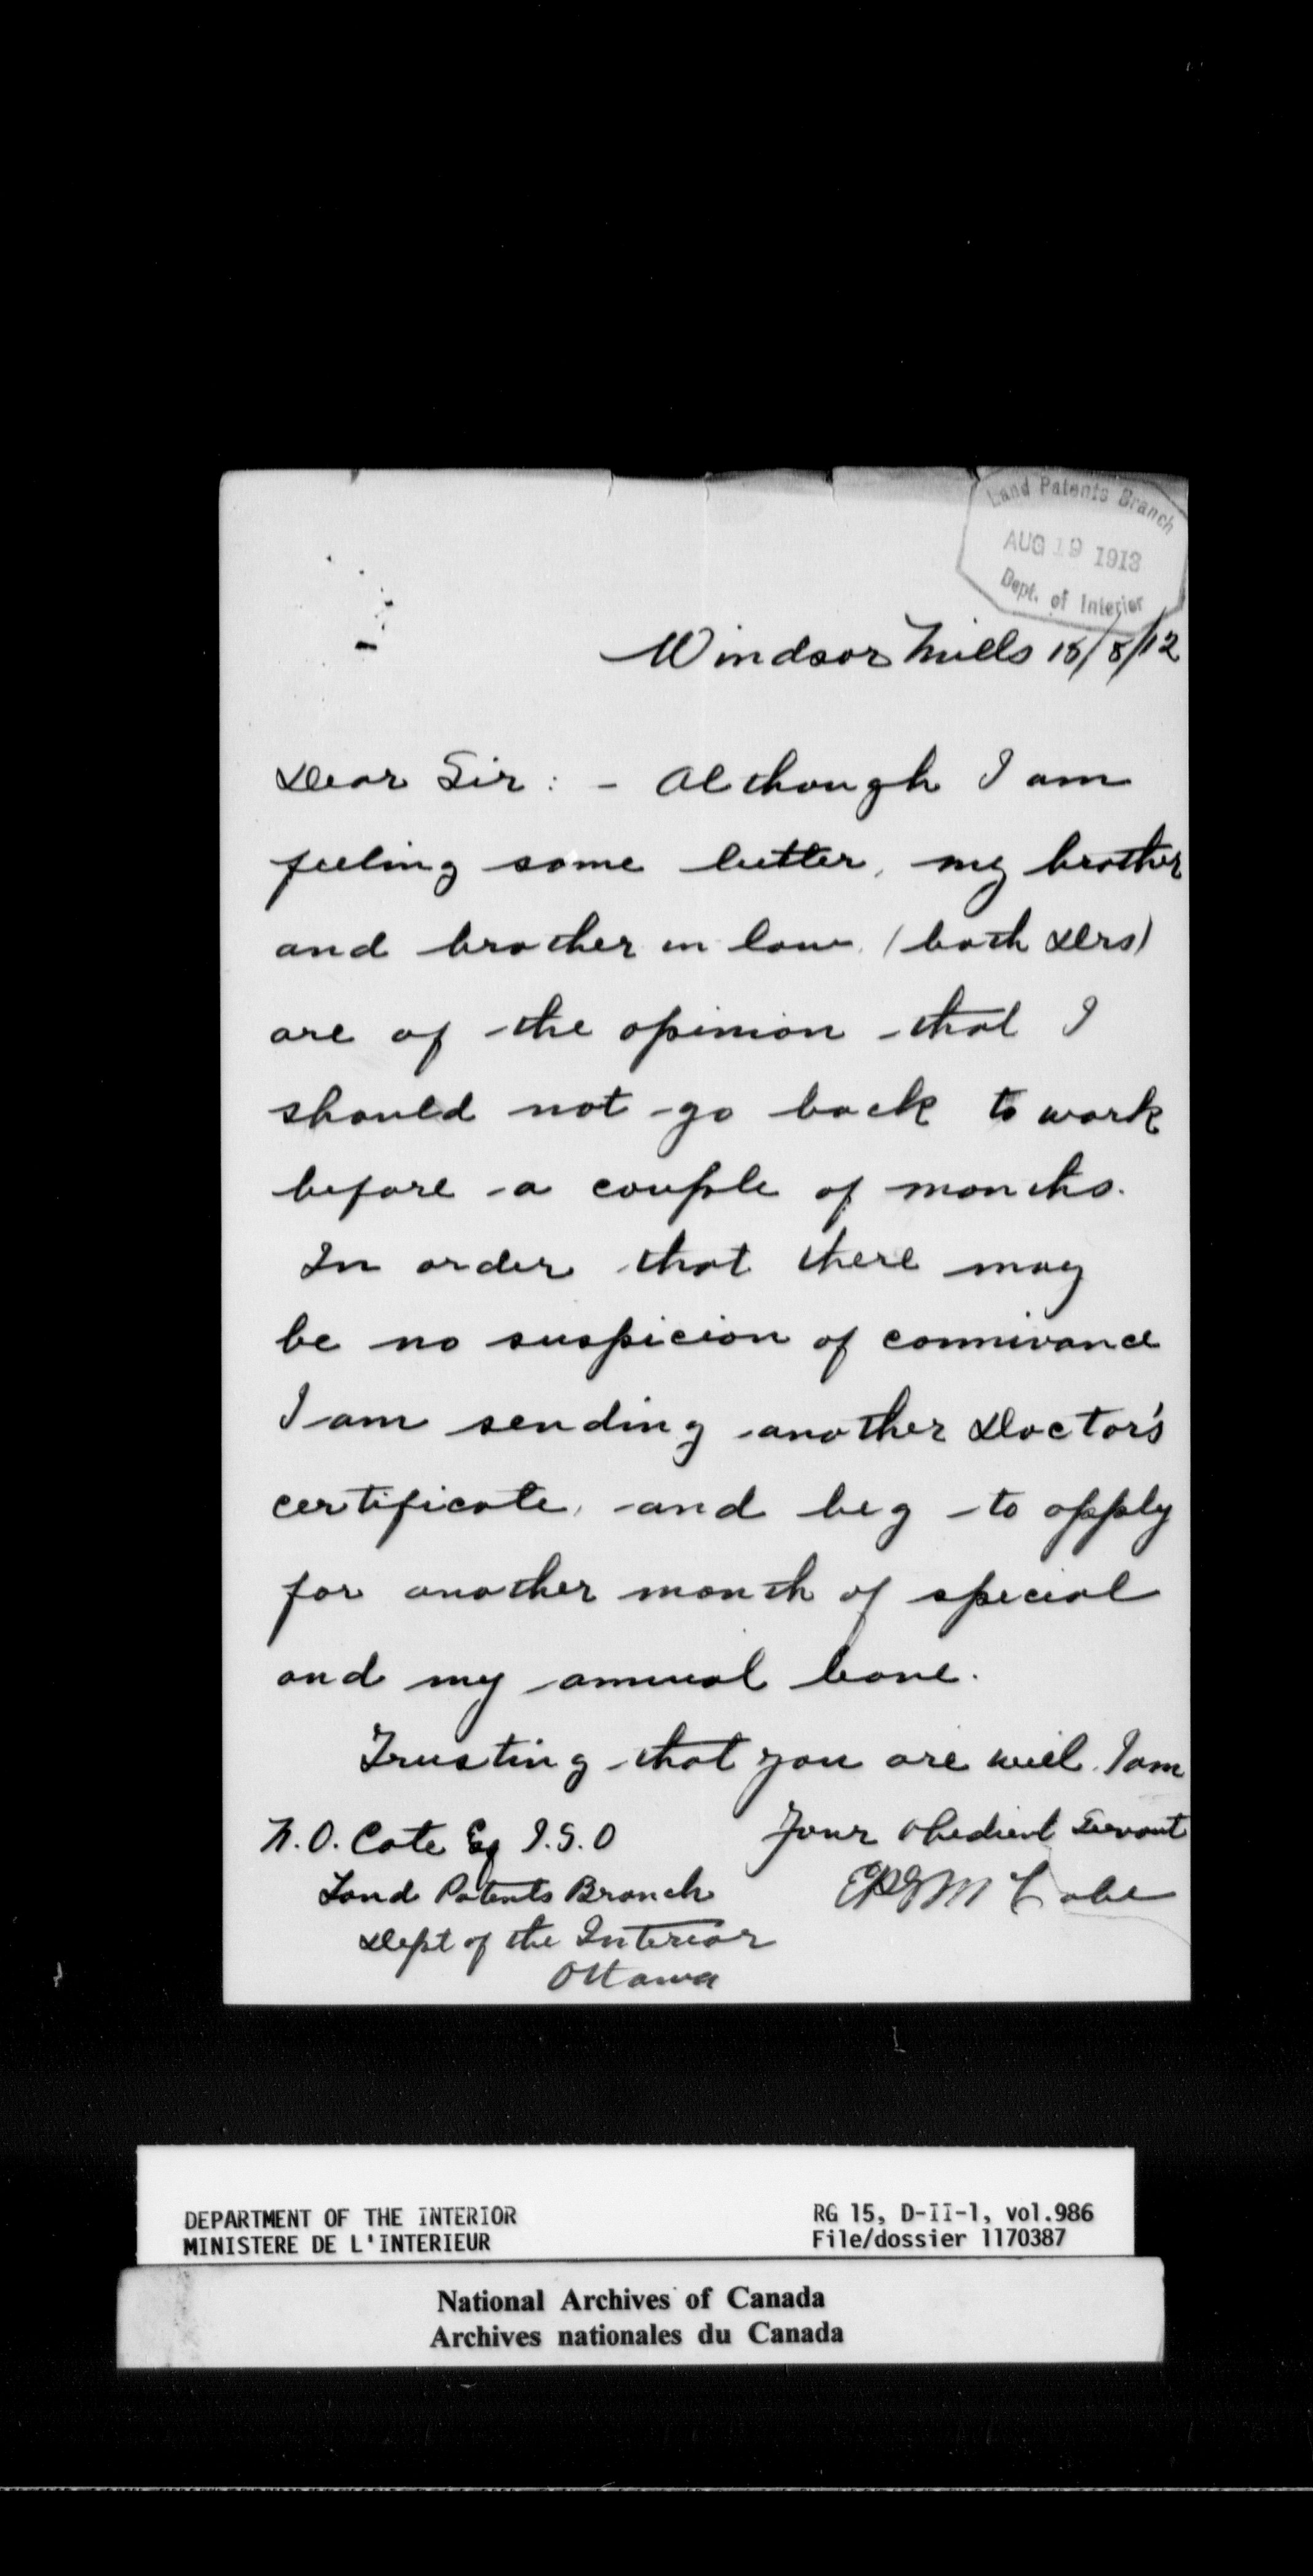 Land Patents Branch
AUG 19 1913
Dept. of Interior
Windsor Mills 18/8/12
Dear Sir: - Although I am
feeling some better, my brother
and brother in law (both Drs)
are of the opinion that I
should not go back to work
before a couple of months.
In order that there may
be no suspicion of connivance
I am sending another Doctor's
certificate, and beg to apply
for another month of special
and my annual leave.
Trusting that you are well I am
Your Obedient Servant
N.O. Cote Esq I.S.O
Land Patents Branch
Dept of the Interior
Ottawa
McCabe
DEPARTMENT OF THE INTERIOR
MINISTERE DE L'INTERIEUR
RG 15, D-II-1, vol.986
File/dossier 1170387
National Archives of Canada
Archives nationales du Canada